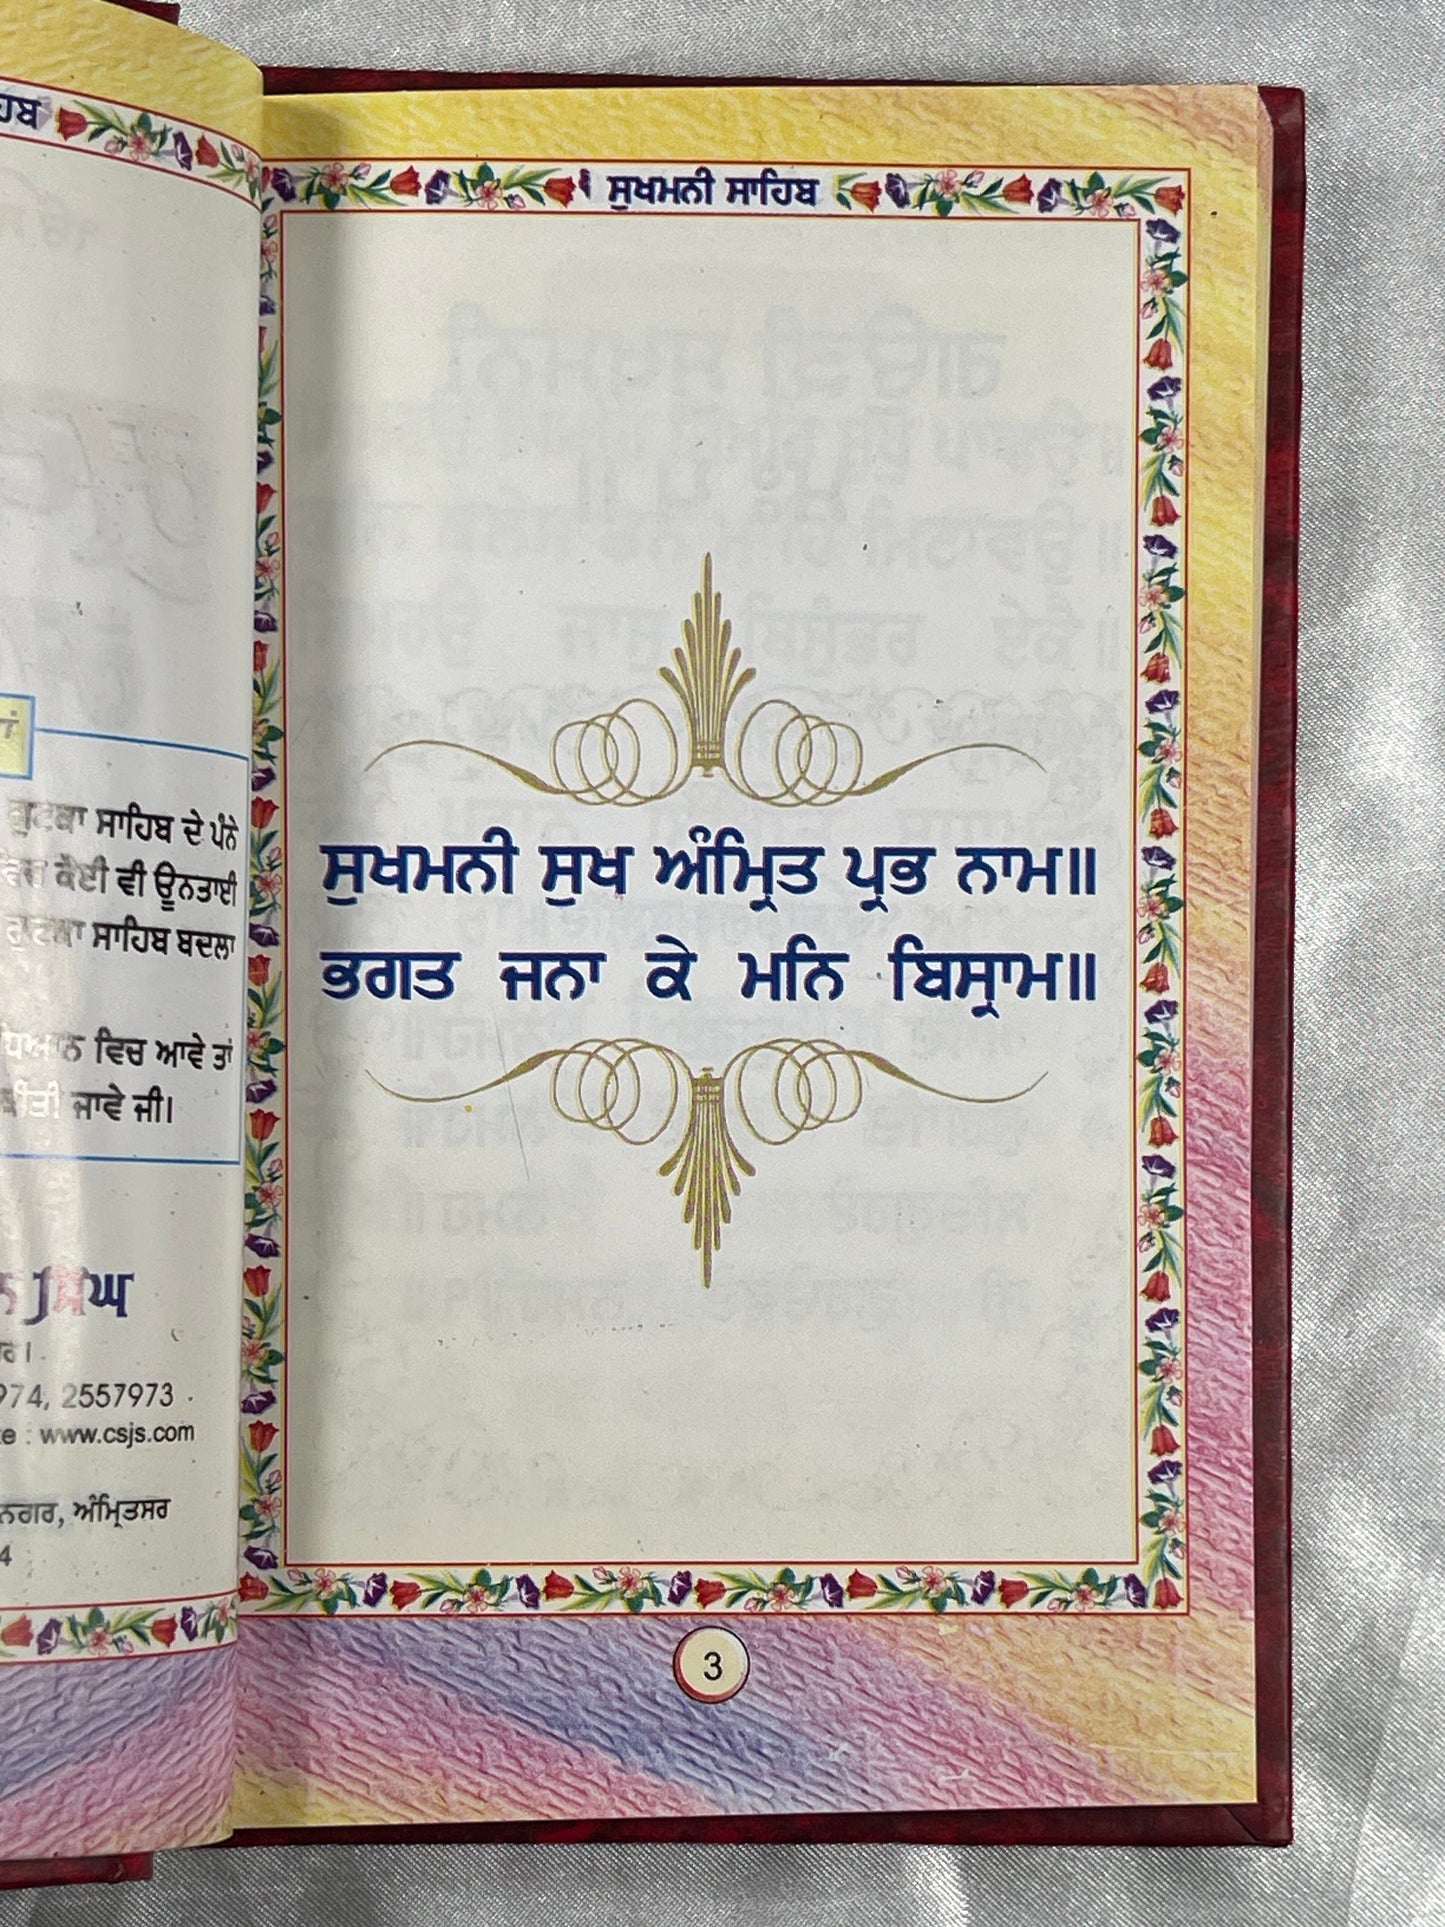 ਹਬ
ਗੁਟਕਾ ਸਾਹਿਬ ਦੇ ਪੰਨੇ
ਕੋਈ ਵੀ ਊਨਤਾਈ
ਗੁਟਕਾ ਸਾਹਿਬ ਬਦਲਾ
ਧਿਆਨ ਵਿਚ ਆਵੇ ਤਾਂ
ਕੀਤੀ ਜਾਵੇ ਜੀ।
ਸਿੰਘ
974, 2557973
: www.csjs.com
ਨਗਰ, ਅੰਮ੍ਰਿਤਸਰ
4
ਸੁਖਮਨੀ ਸਾਹਿਬ
ਸੁਖਮਨੀ ਸੁਖ ਅੰਮ੍ਰਿਤ ਪ੍ਰਭ ਨਾਮ॥
ਭਗਤ ਜਨਾ ਕੇ ਮਨਿ ਬਿਸ੍ਰਾਮ॥
3